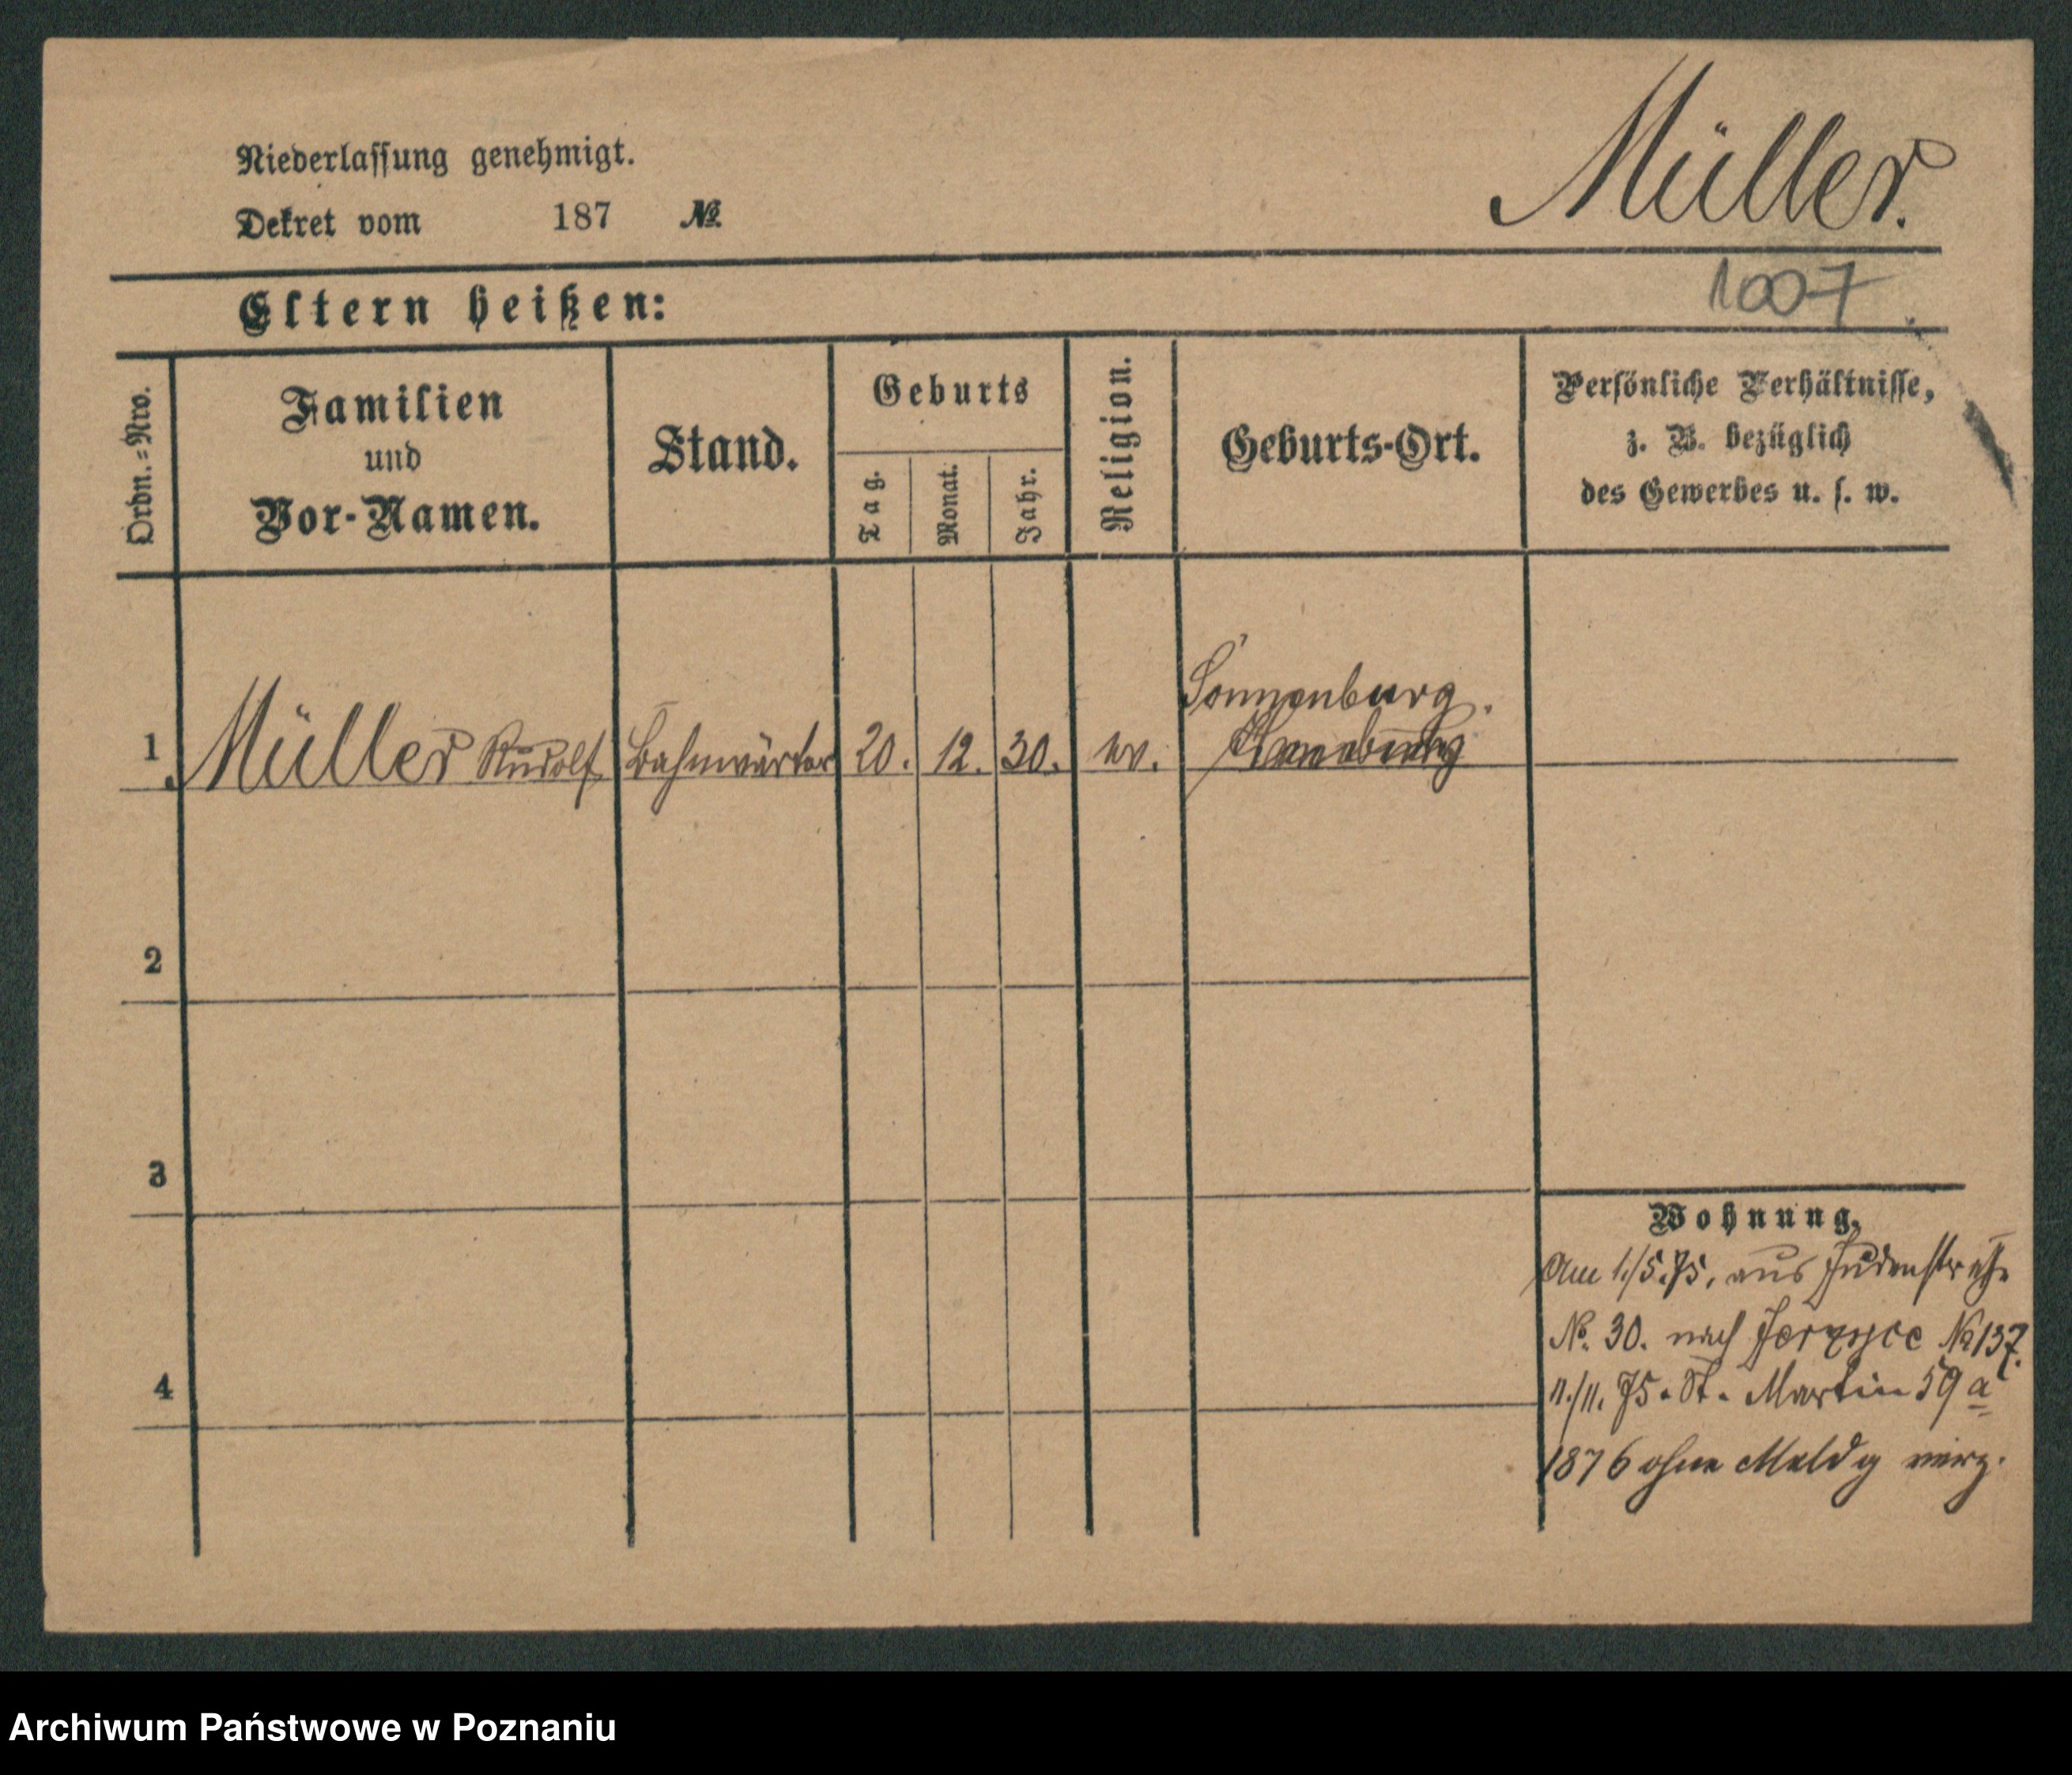 Müller.
Niederlassung genehmigt.
Dekret vom 187 №
1007
Eltern heißen:
Ordn.=Nro.
Familien
und
Vor-Namen.
Stand.
Geburts
Tag.
Monat.
Jahr.
Religion.
Geburts-Ort.
Persönliche Verhältnisse,
z. B. bezüglich
des Gewerbes u. s. w.
Sonnenburg.
1 Müller Rudolf Bahnwärter 20. 12. 30. ev.
2
3
4
Wohnung.
Am 1./5.75. aus Judenstraße
No. 30. nach Jerzyce No 137.
11./11. 75. St. Martin 59 a
1876 ohne Meldg verz.
Archiwum Państwowe w Poznaniu